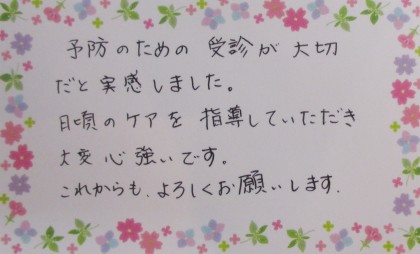 予防のための受診が大切
だと実感しました。
日頃のケアを指導していただき
大変心強いです。
これからも、よろしくお願いします.